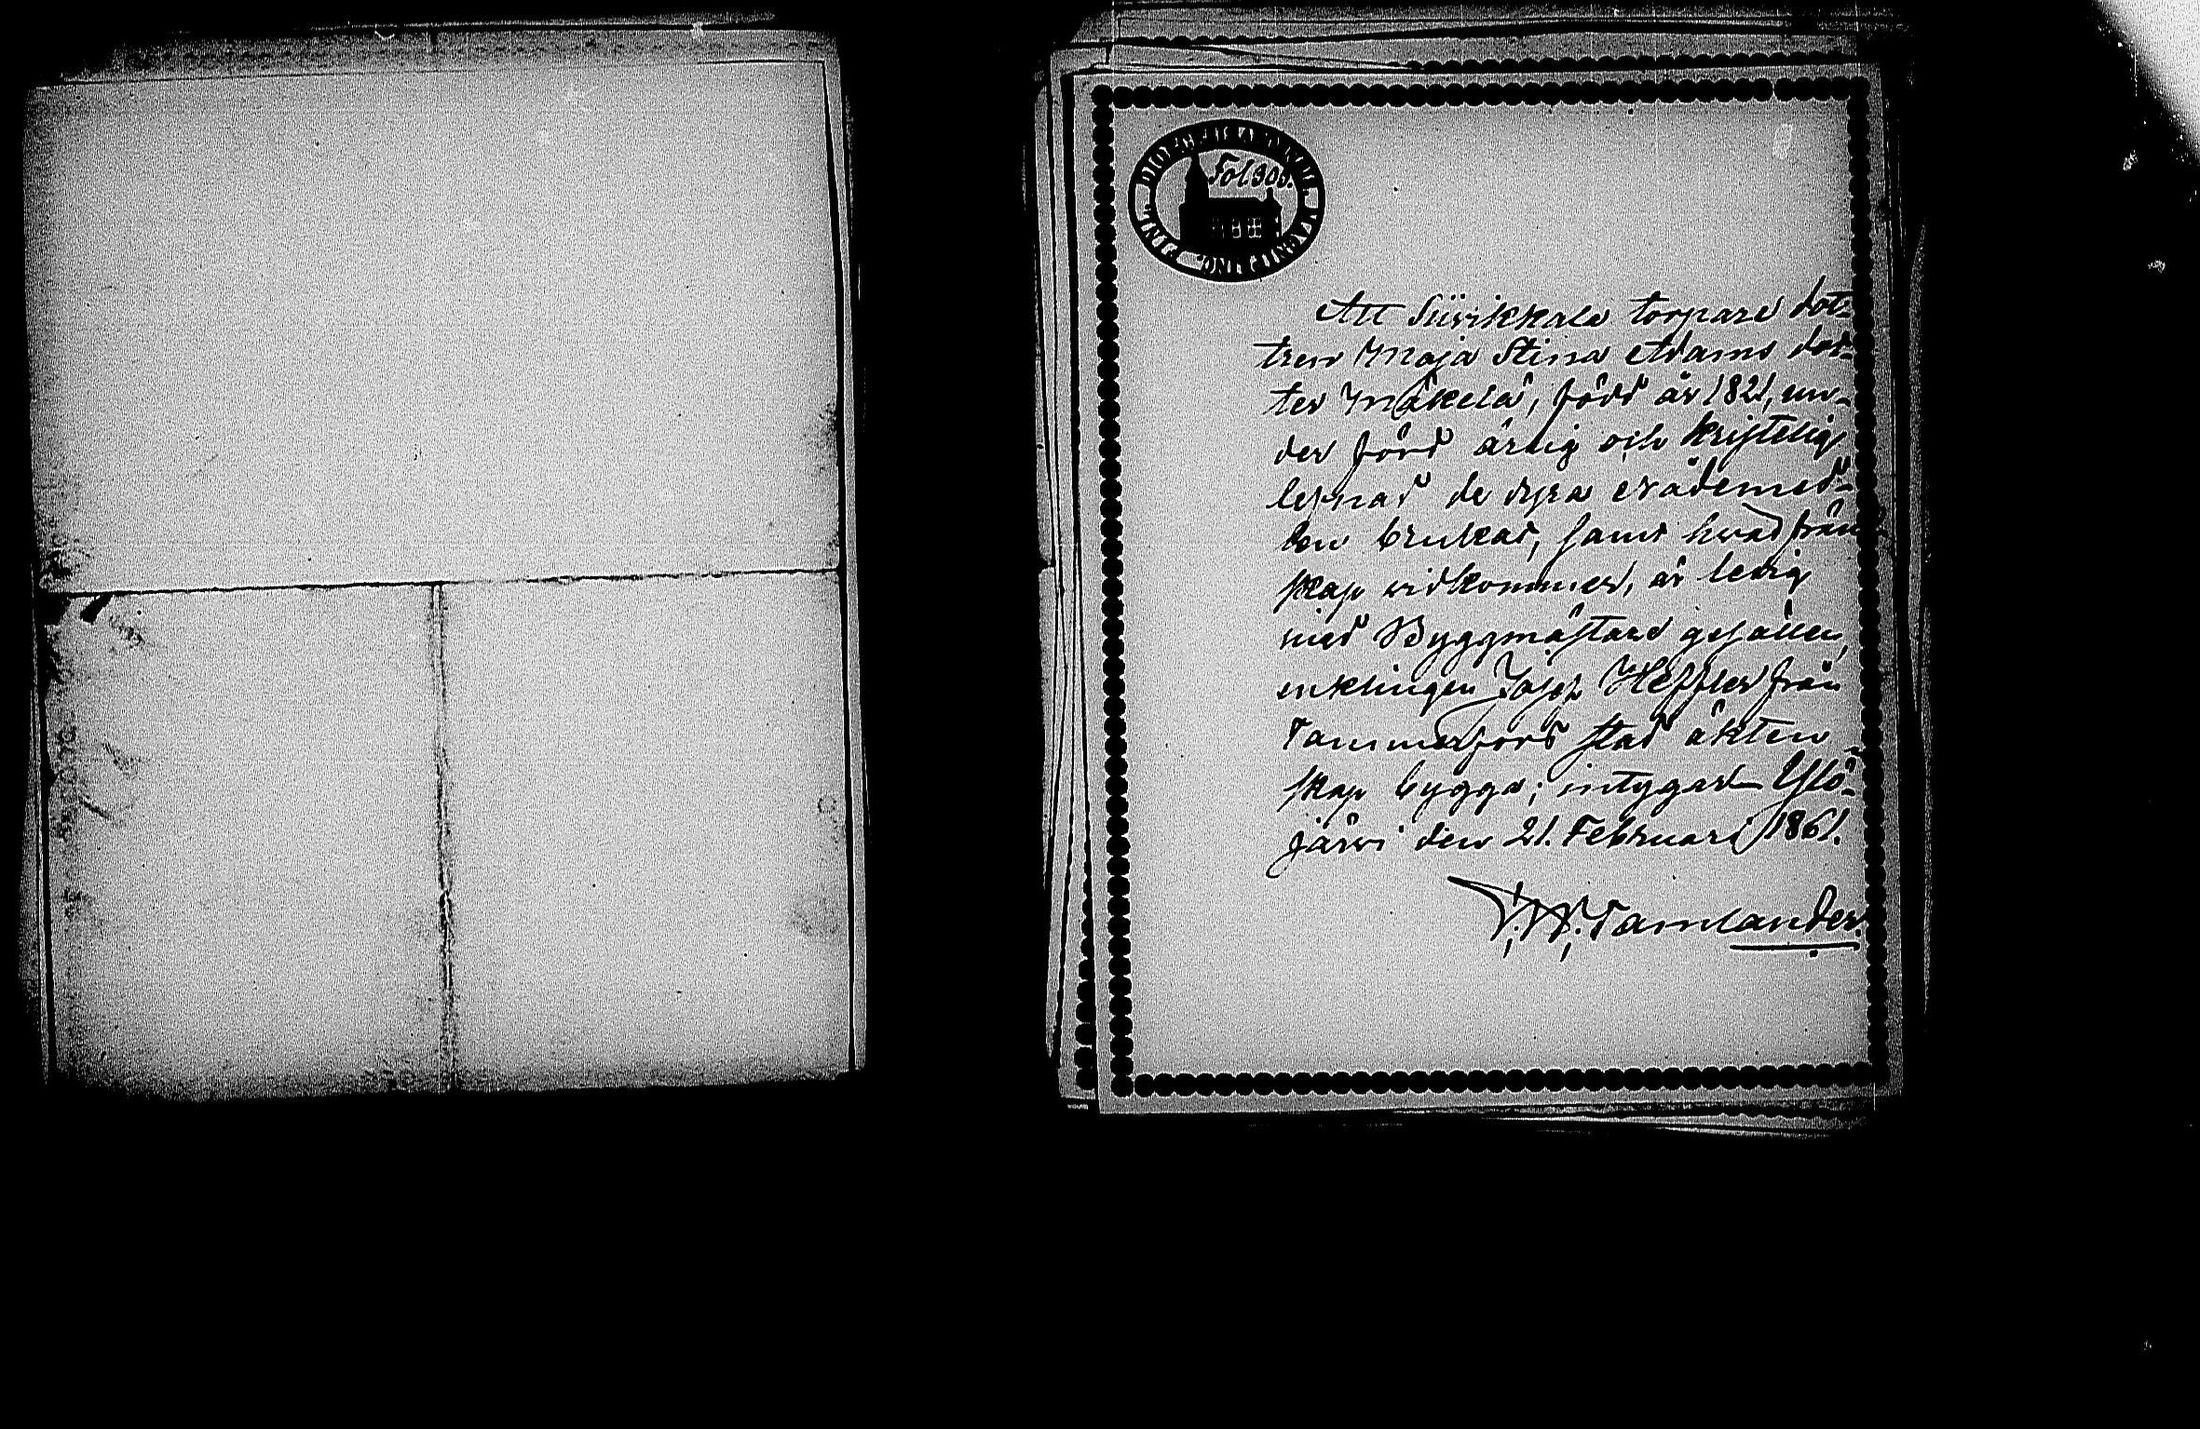 Fol 303.
Att Siivikkala torpare dot-
tren Maja Stina Adams dot-
ter Mäkelä, född år 1821, un-
der förd ärlig och kristelig
lefnad de dyra nådemed-
len brukat, samt hvad frän
skap vidkommer, är ledig
med Byggmästare gesällen,
enklingen Josef Heffler från
Tammerfors stad äkten
skap bygga; intygar Ylö-
järvi den 21. Februari 1861.
F. W. Tamlander.